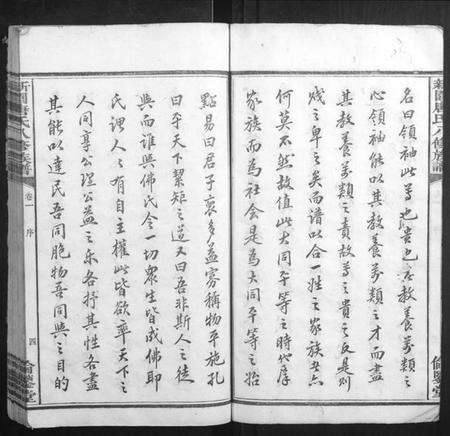 新圖唐氏八修族譜
名曰領袖此尊也貴也在教養萬類之
心領袖能以其教養萬類之才而盡
其教養萬類之責故尊之貴之反是則
賤之卑之矣而譜以合一姓之家族共
何莫不然故值此大同平等之時代序
家族而為社會是為大同平等之始
點易曰君子裒多益寡稱物平施孔
曰平天下絜矩之道又曰吾非斯人之徒
與而誰與佛氏令一切眾生皆成佛耶
氏謂人之有自主權此皆欲率天下之
人同享公理公益之樂各抒其性各盡
其能以達民吾同胞物吾同與之目的
新圖唐氏八修族譜
卷一
序
四